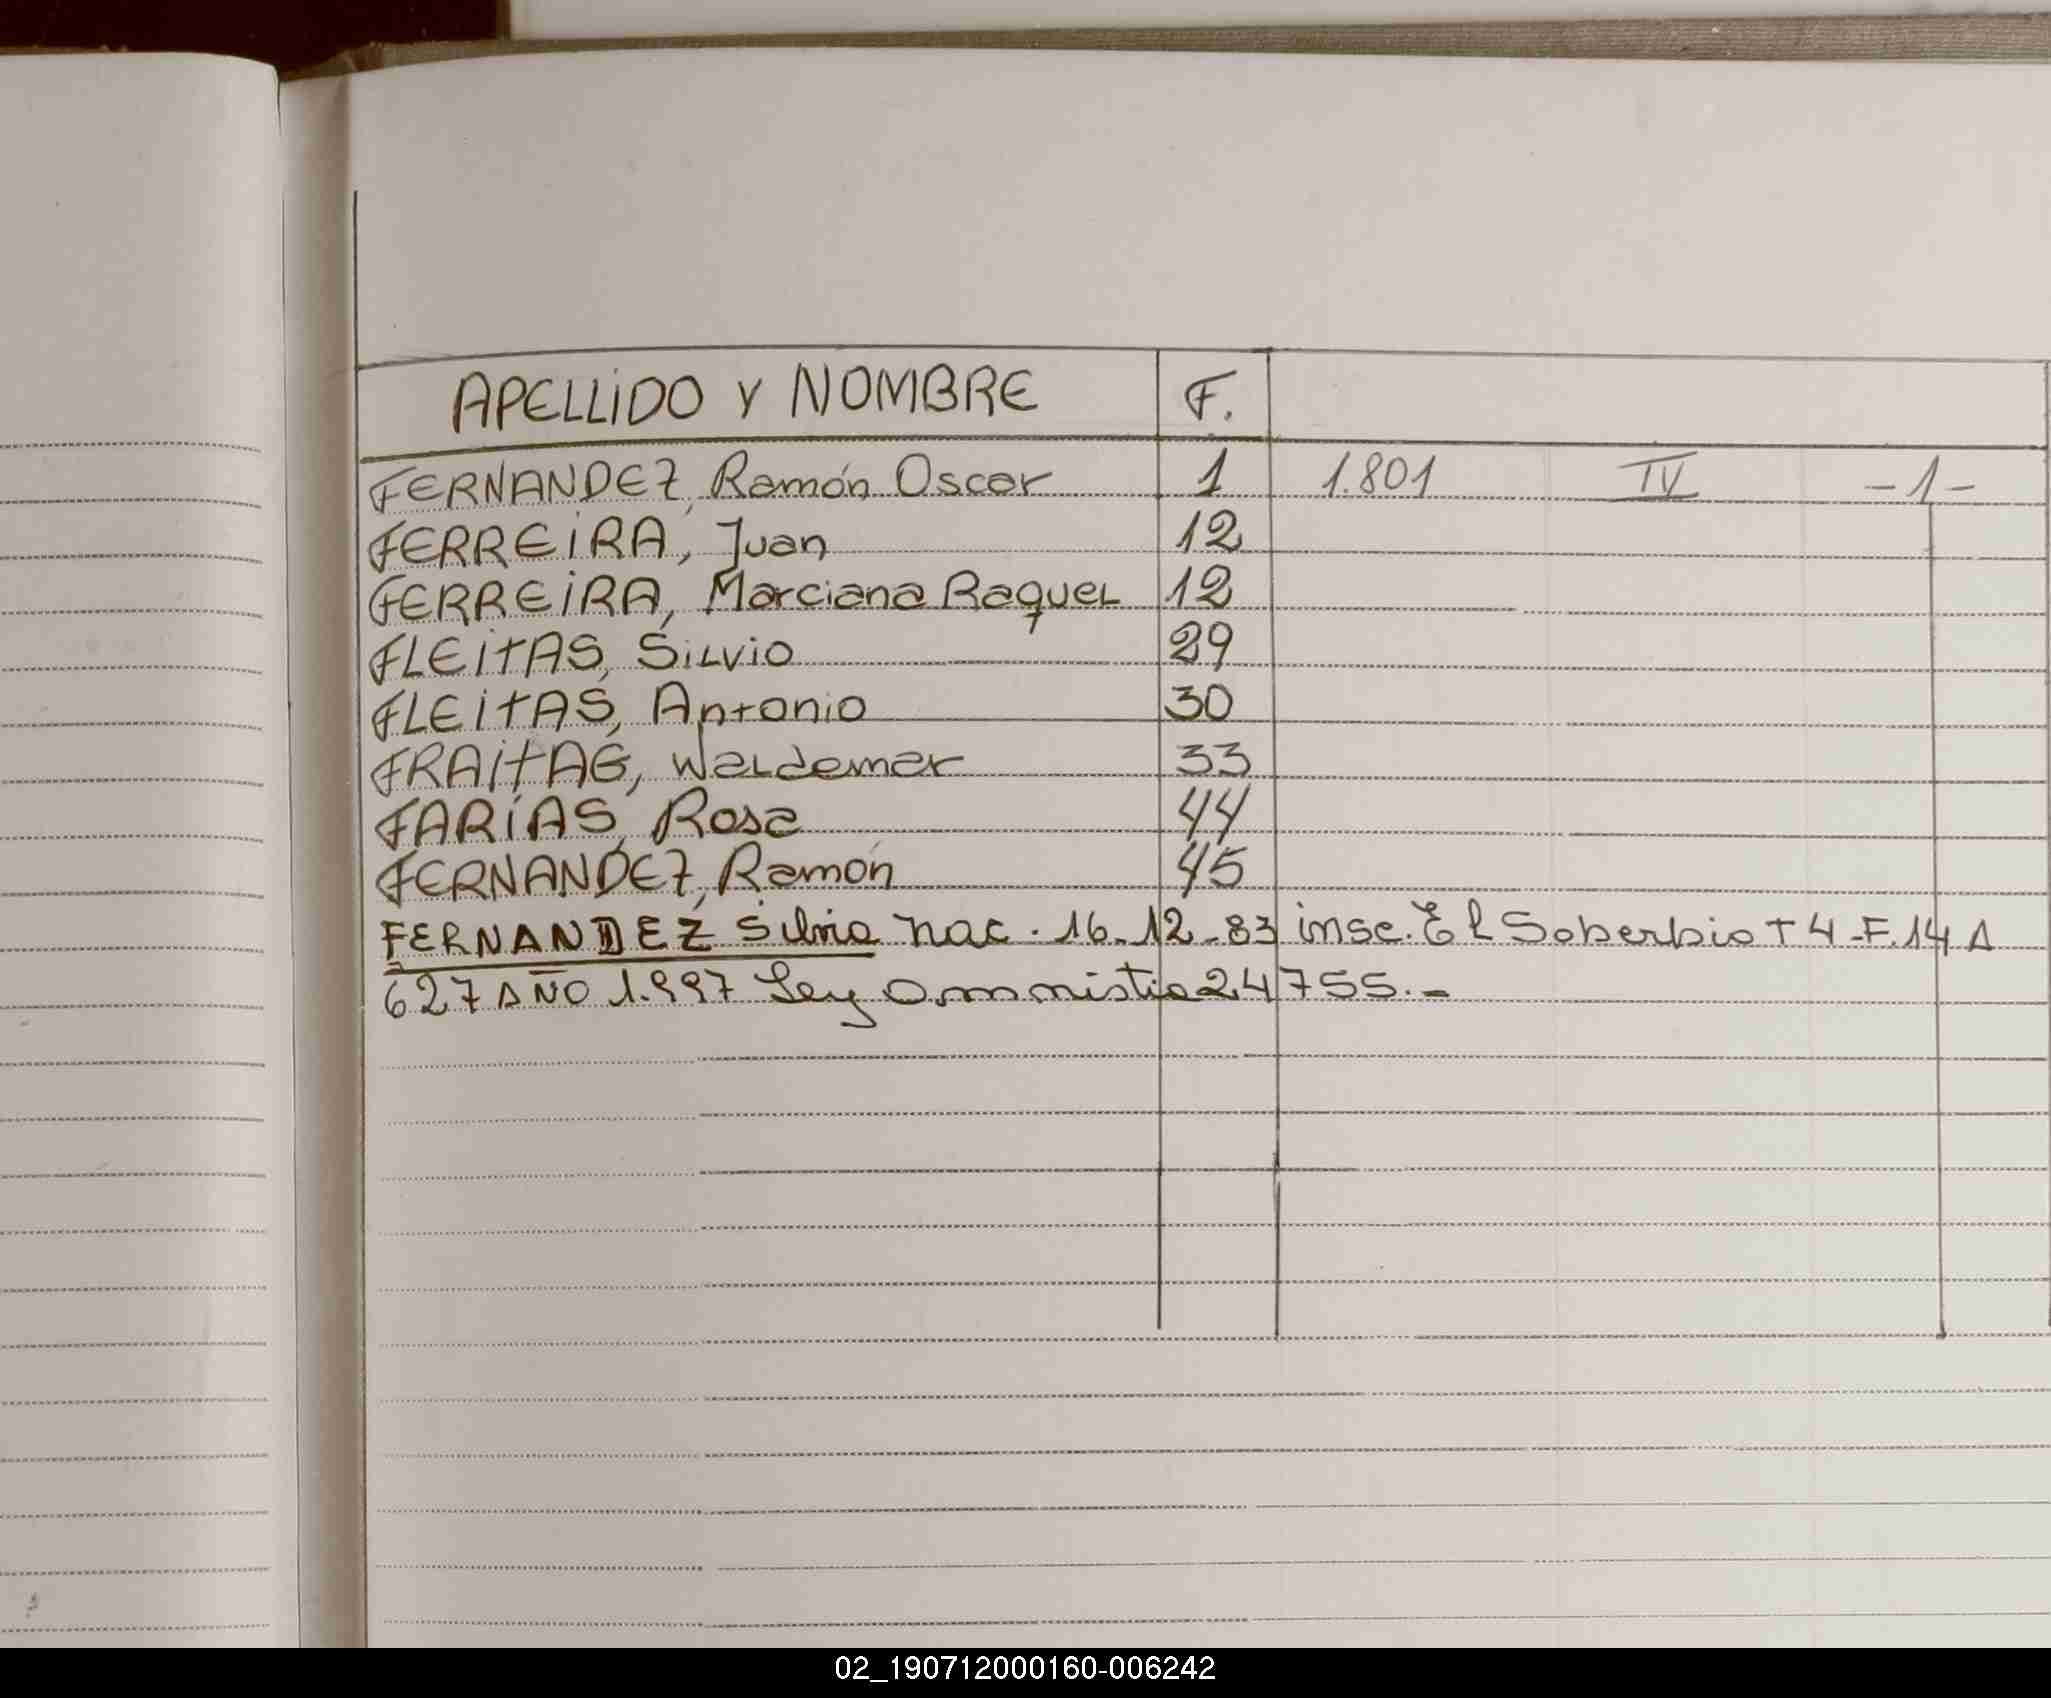 APELLIDO Y NOMBRE F.
FERNANDEZ, Ramón Oscar 1 1.801 IV -1-
FERREIRA, Juan 12
FERREIRA, Marciana Raquel 12
FLEITAS, Silvio 29
FLEITAS, Antonio 30
FRAITAG, Waldemar 33
FARÍAS, Rosa 44
FERNANDEZ, Ramón 45
FERNANDEZ Silvia nac. 16-12-83 insc. El Soberbio T 4-F.14 A
627 AÑO 1.997 Ley Ommistia 24755.-
02_190712000160-006242